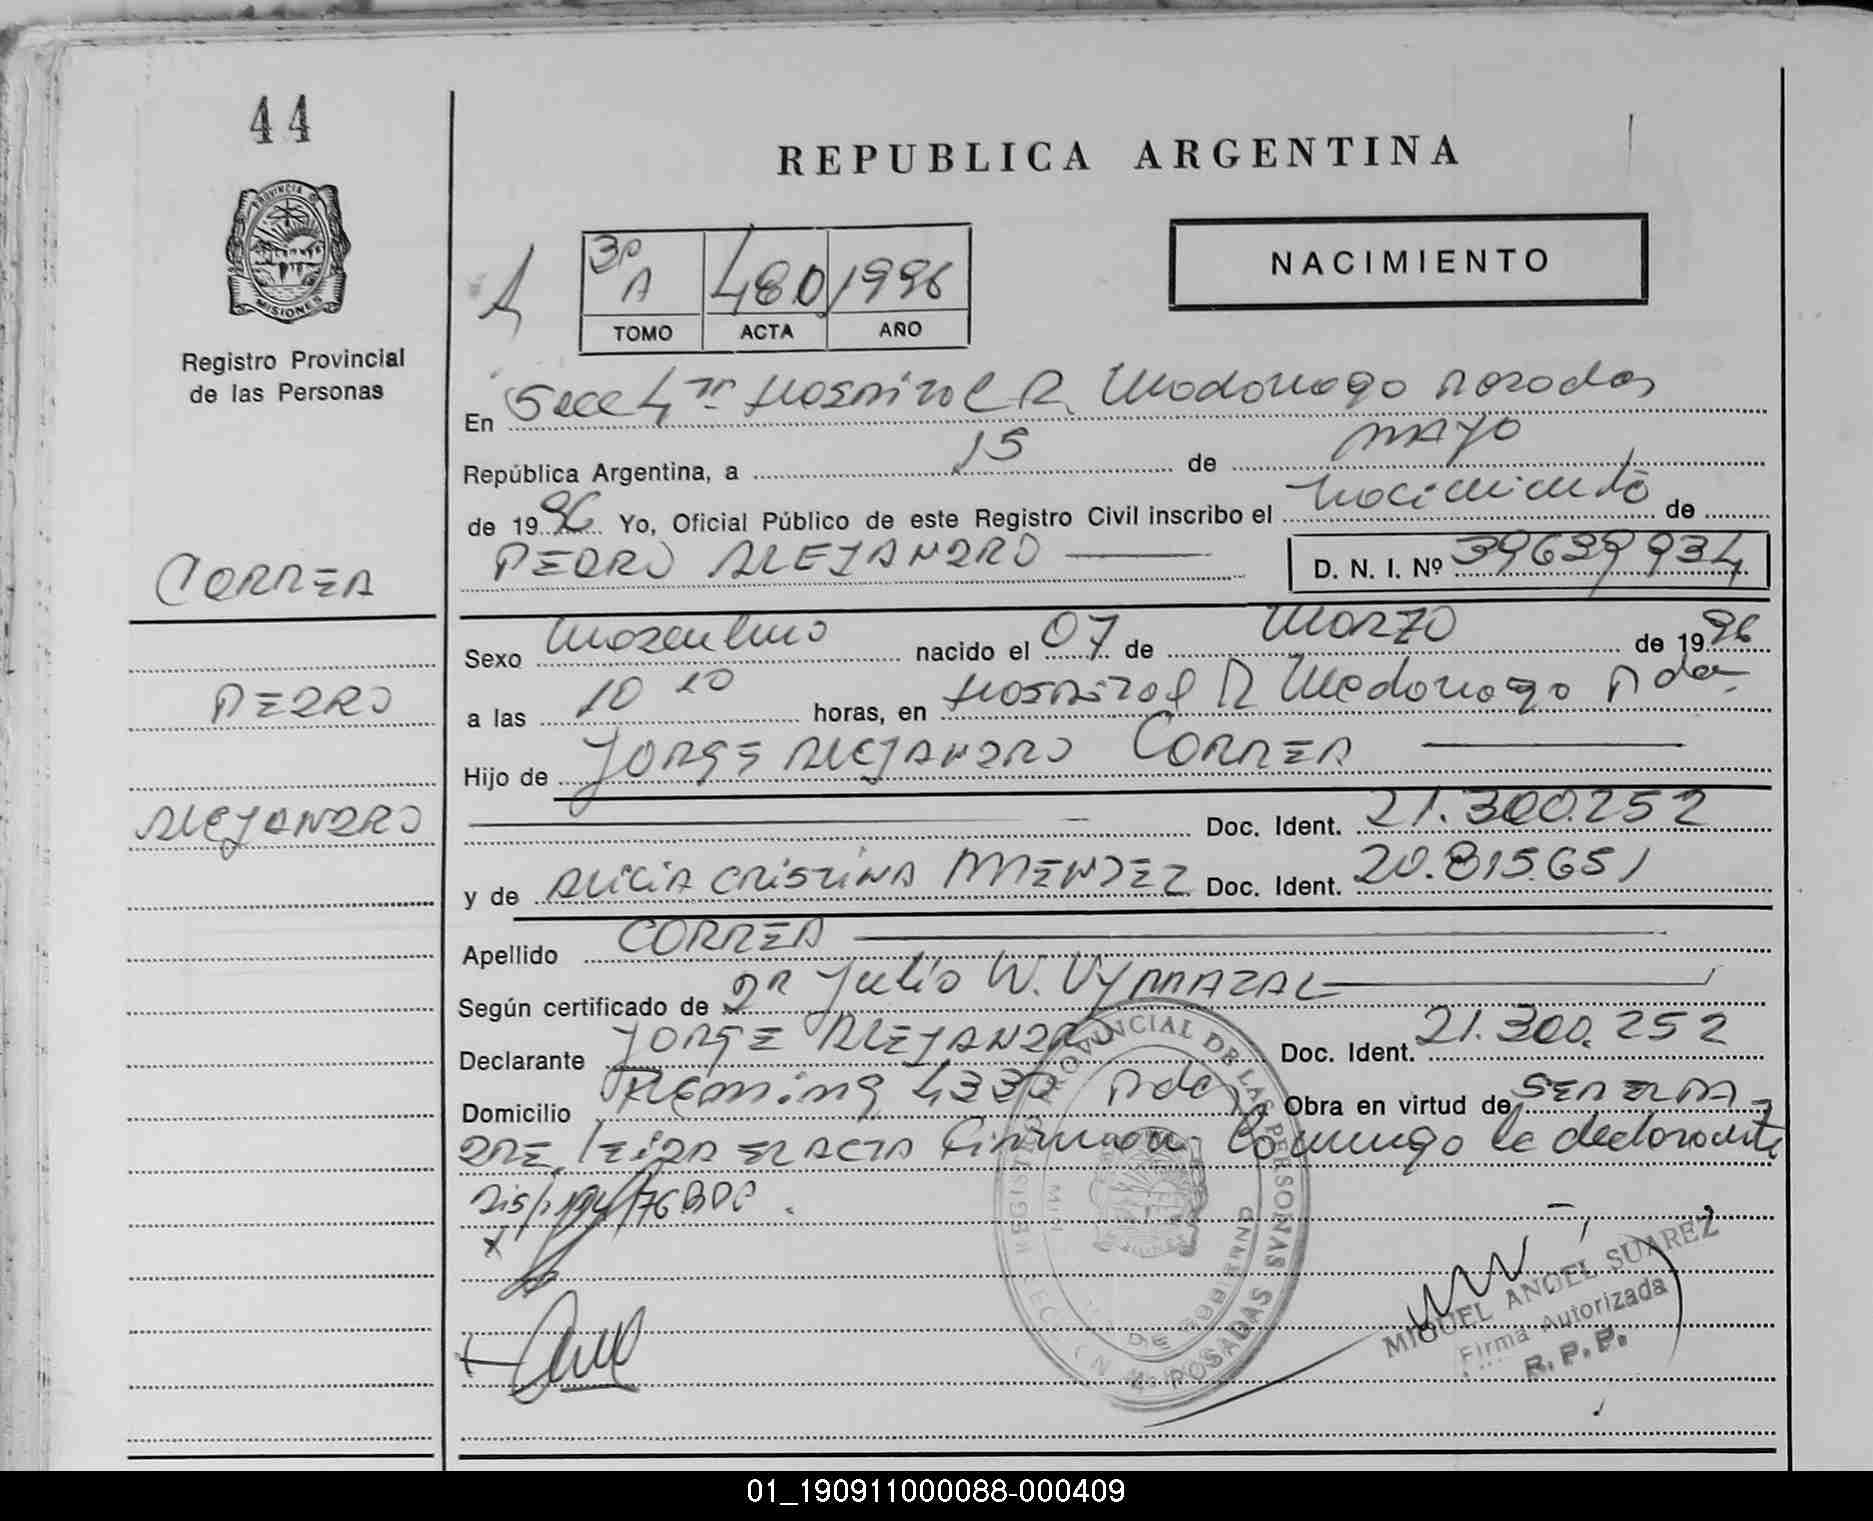 44
REPUBLICA ARGENTINA
PROVINCIA DE
MISIONES
Registro Provincial
de las Personas
NACIMIENTO
3º A 480 1996
TOMO ACTA AÑO
En Secc 4ta Hospital R. Madariaga Posadas
República Argentina, a 15 de MAYO
de 1996 Yo, Oficial Público de este Registro Civil inscribo el Nacimiento de
PEDRO ALEJANDRO D. N. I. Nº 39639934
CORREA
PEDRO
ALEJANDRO
Sexo Masculino nacido el 07 de Marzo de 1996
a las 10 10 horas, en Hospital R Madariaga Pdas
Hijo de JORGE ALEJANDRO CORREA
Doc. Ident. 21.300.252
y de ALICIA CRISTINA MENDEZ Doc. Ident. 20.815.651
Apellido CORREA
Según certificado de DR Julio W. VYMAZAL
Declarante JORGE ALEJANDRO Doc. Ident. 21.300.252
Domicilio Fleming 4330 Pdas Obra en virtud de SER EL PA-
DRE, leida EL ACTA Firman Conmigo le declarante
Dis/194/76 BDC.
REGISTRO PROVINCIAL DE LAS PERSONAS
POSADAS
MIGUEL ANGEL SUAREZ
Firma Autorizada
R.P.P.
01_190911000088-000409